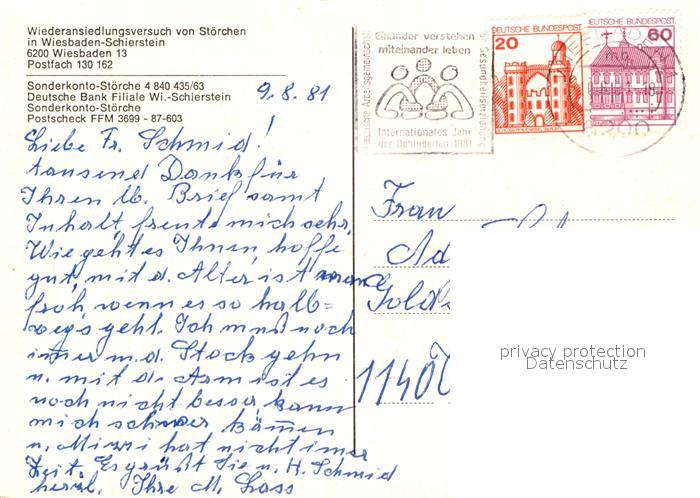 Wiederansiedlungsversuch von Störchen
in Wiesbaden-Schierstein
6200 Wiesbaden 13
Postfach 130 162
Sonderkonto-Störche 4 840 435/63
Deutsche Bank Filiale Wi.-Schierstein
Sonderkonto-Störche
Postscheck FFM 3699 - 87-603
9.8.81
Liebe Fr. Schmid!
tausend Dank für
Ihren lb. Brief samt
Inhalt, freute mich sehr,
Wie geht es Ihnen, hoffe
gut, mit d. Alter ist man
froh, wenn es so halb-
wegs geht. Ich muß noch
immer m. d. Stock gehn
u. mit d. Arm ist es
noch nicht besser, kann
mich schwer kämmen
u. Mizzi hat nicht imer
Zeit. Es grüßt Sie u. H. Schmid
herzl. Ihre M. Lass
Einander verstehen
miteinander leben
Internationales Jahr
der Behinderten 1981
für Gesundheitserziehung
DEUTSCHE BUNDESPOST
20
DEUTSCHE BUNDESPOST
60
Frau
Ad
Gold
1140
privacy protection
Datenschutz